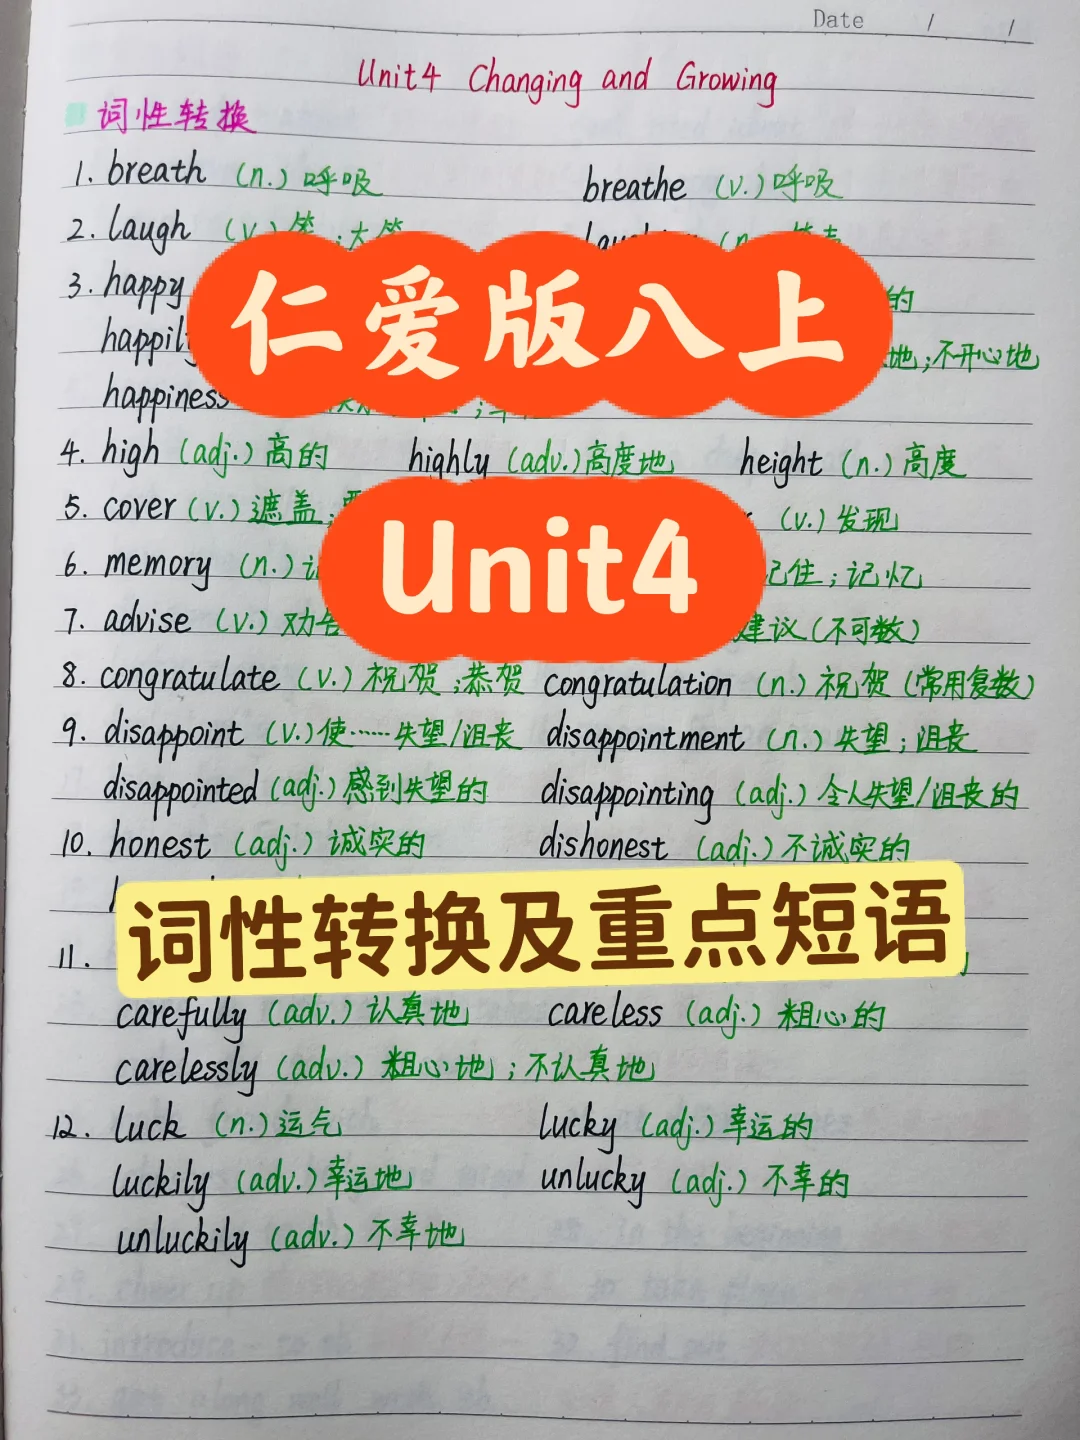 Date / /
Unit4 Changing and Growing
词性转换
1. breath (n.) 呼吸 breathe (v.) 呼吸
2. laugh (v.) 笑；大笑
3. happy 的
仁爱版八上
地；不开心地
happiness
4. high (adj.) 高的 highly (adv.) 高度地 height (n.) 高度
5. cover (v.) 遮盖； (v.) 发现
Unit4
6. memory (n.) 记住；记忆
7. advise (v.) 劝告 建议(不可数)
8. congratulate (v.) 祝贺；恭贺 congratulation (n.) 祝贺(常用复数)
9. disappoint (v.) 使……失望/沮丧 disappointment (n.) 失望；沮丧
disappointed (adj.) 感到失望的 disappointing (adj.) 令人失望/沮丧的
10. honest (adj.) 诚实的 dishonest (adj.) 不诚实的
词性转换及重点短语
11.
carefully (adv.) 认真地 careless (adj.) 粗心的
carelessly (adv.) 粗心地；不认真地
12. luck (n.) 运气 lucky (adj.) 幸运的
luckily (adv.) 幸运地 unlucky (adj.) 不幸的
unluckily (adv.) 不幸地